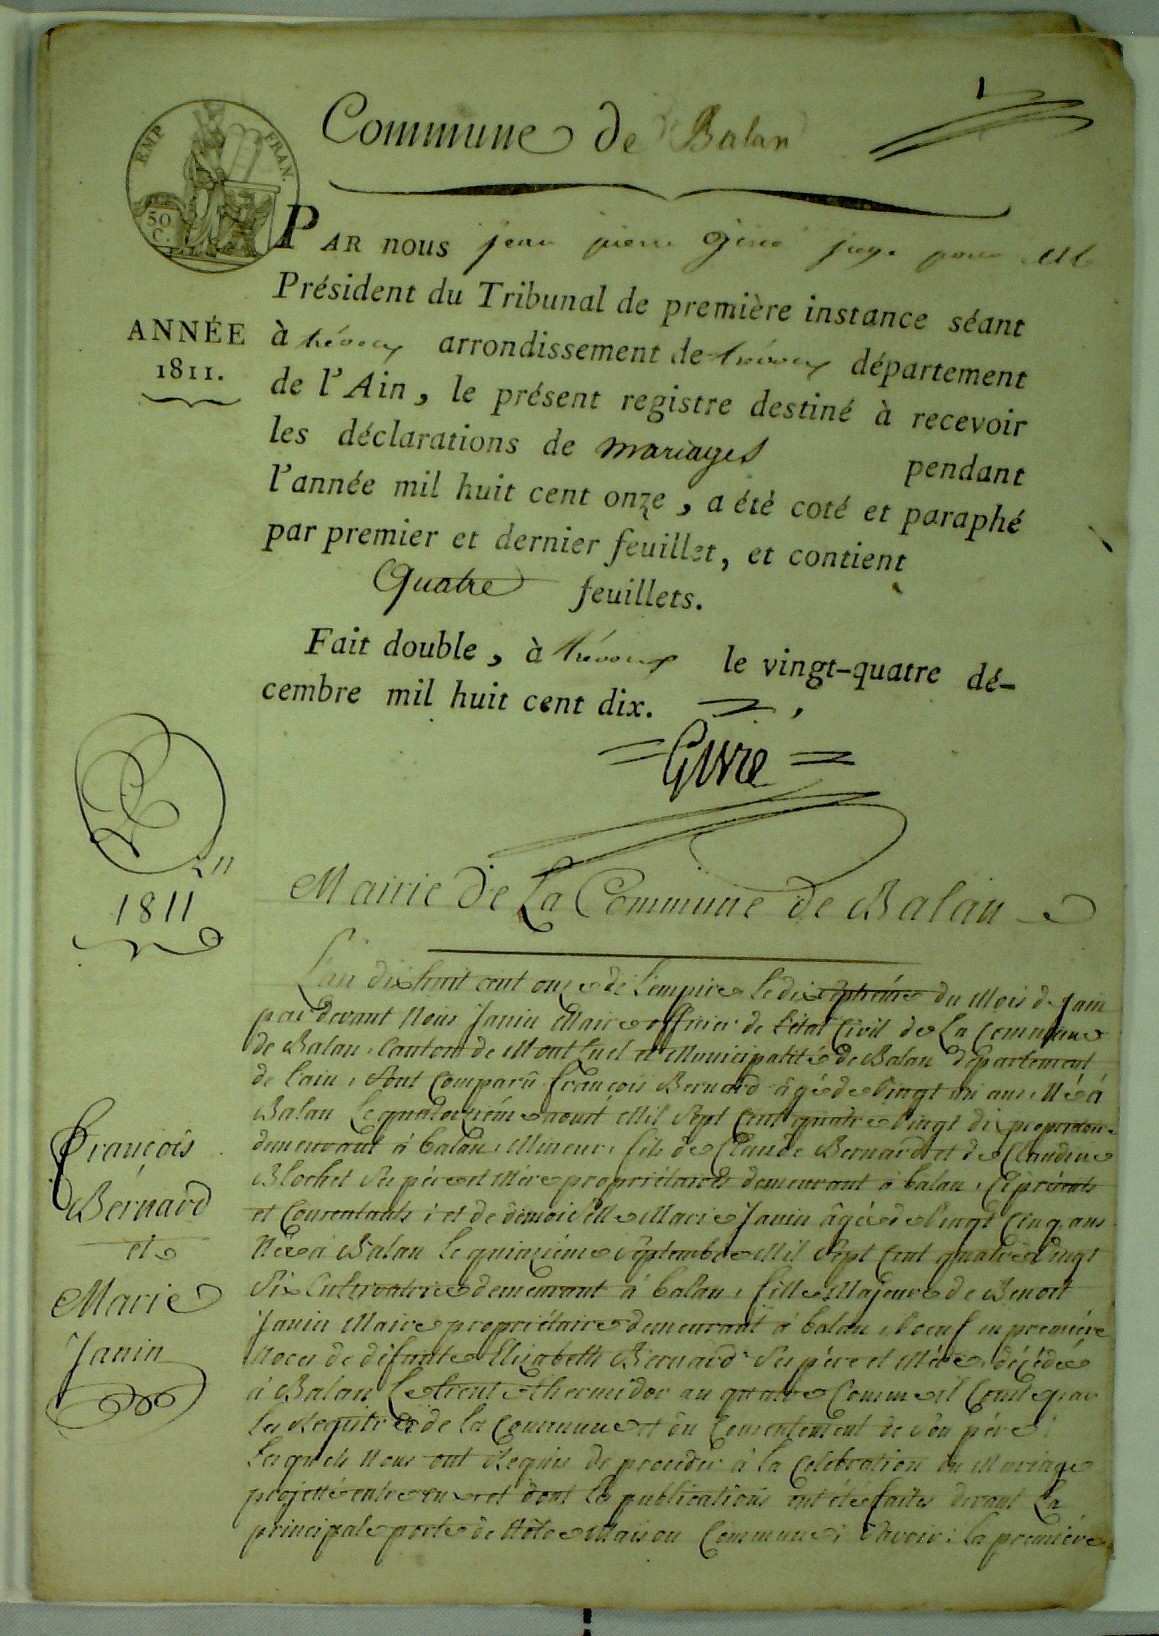 Commune de Balan
EMP. FRAN.
50 C.
PAR nous jean pierre Givre juge pour Mr
Président du Tribunal de première instance séant
ANNÉE
1811.
à trévoux arrondissement de trévoux département
de l'Ain, le présent registre destiné à recevoir
les déclarations de mariages pendant
l'année mil huit cent onze, a été coté et paraphé
par premier et dernier feuillet, et contient
Quatre feuillets.
Fait double, à trévoux le vingt-quatre dé-
cembre mil huit cent dix.
Givre
1811
Mairie De La Commune de Balan
L'an dix huit cent onze de l'empire le dix septième du Mois de Juin
par devant Nous Janin Maire officier de l'état Civil de La Commune
de Balan, Canton de Montluel et Municipalité de Balan département
de l'ain, Sont Comparû françois Bernard âgé de Vingt un ans Né à
Balan Le quatorzième aout Mil Sept Cent quatre Vingt dix propriétaire
demeurant à balan, Mineur, fils de Claude Bernard et de Claudine
Blochet Ses père et Mère propriétaires demeurant à balan, Cy présents
et Consentants ; et de demoiselle Marie Janin âgée de Vingt Cinq ans
Née à Balan le quinzième Septembre Mil Sept Cent quatre Vingt
Six Cultivatrice demeurant à balan, fille Majeure de Benoit
Janin Maire propriétaire demeurant à balan, Veuf en première
Noces de défunte Elizabeth Bernard Ses père et Mère, décédée
à Balan Le trente thermidor an quatre Comme il Conste par
les Registres de la Commune et du Consentement de Son père ;
Lesquels Nous ont Requis de procéder à la Célébration du Mariage
projetté entre eux et dont les publications ont été faites devant La
principale porte de Nôtre Maison Commune ; Savoir : la première
François
Bernard
et
Marie
Janin